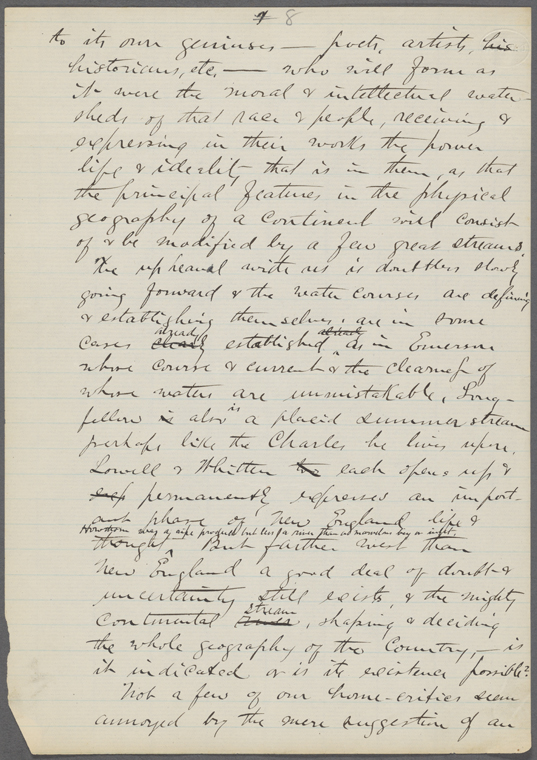 8
to its own geniuses — poets, artists, his
historians, etc, — who will form as
it were the moral & intellectual water-
sheds of that race & people, receiving &
expressing in their works the power
life & ideality that is in them, as that
the principal features in the physical
geography of a continent will consist
of & be modified by a few great streams.
The upheaval with us is doubtless slowly
going forward & the water courses are defining
& establishing themselves; are in some
already already
cases clearly established, as in Emerson
whose course & current & the clearness of
whose waters are unmistakable. Long-
fellow is also is a placid summer stream
perhaps like the Charles he lives upon.
Lowell & Whittier each opens up &
exp permanently expresses an import-
ant phase of New England life &
Hawthorne was a ripe product but less a river than a
thought. But farther west than
New England a good deal of doubt &
uncertainty still exists, & the mighty
stream
continental river, shaping & deciding
the whole geography of the Country, — is
it indicated or is its existence possible?
Not a few of our home-critics seem
annoyed by the mere suggestion of an